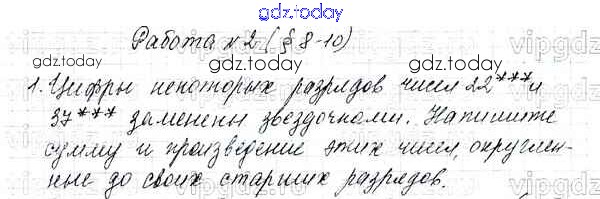 gdz.today
Работа №2 (§ 8-10)
gdz.today
gdz.today
1. Цифры некоторых разрядов чисел 22*** и
37*** заменены звездочками. Напишите
сумму и произведение этих чисел, округлен-
ные до своих старших разрядов.